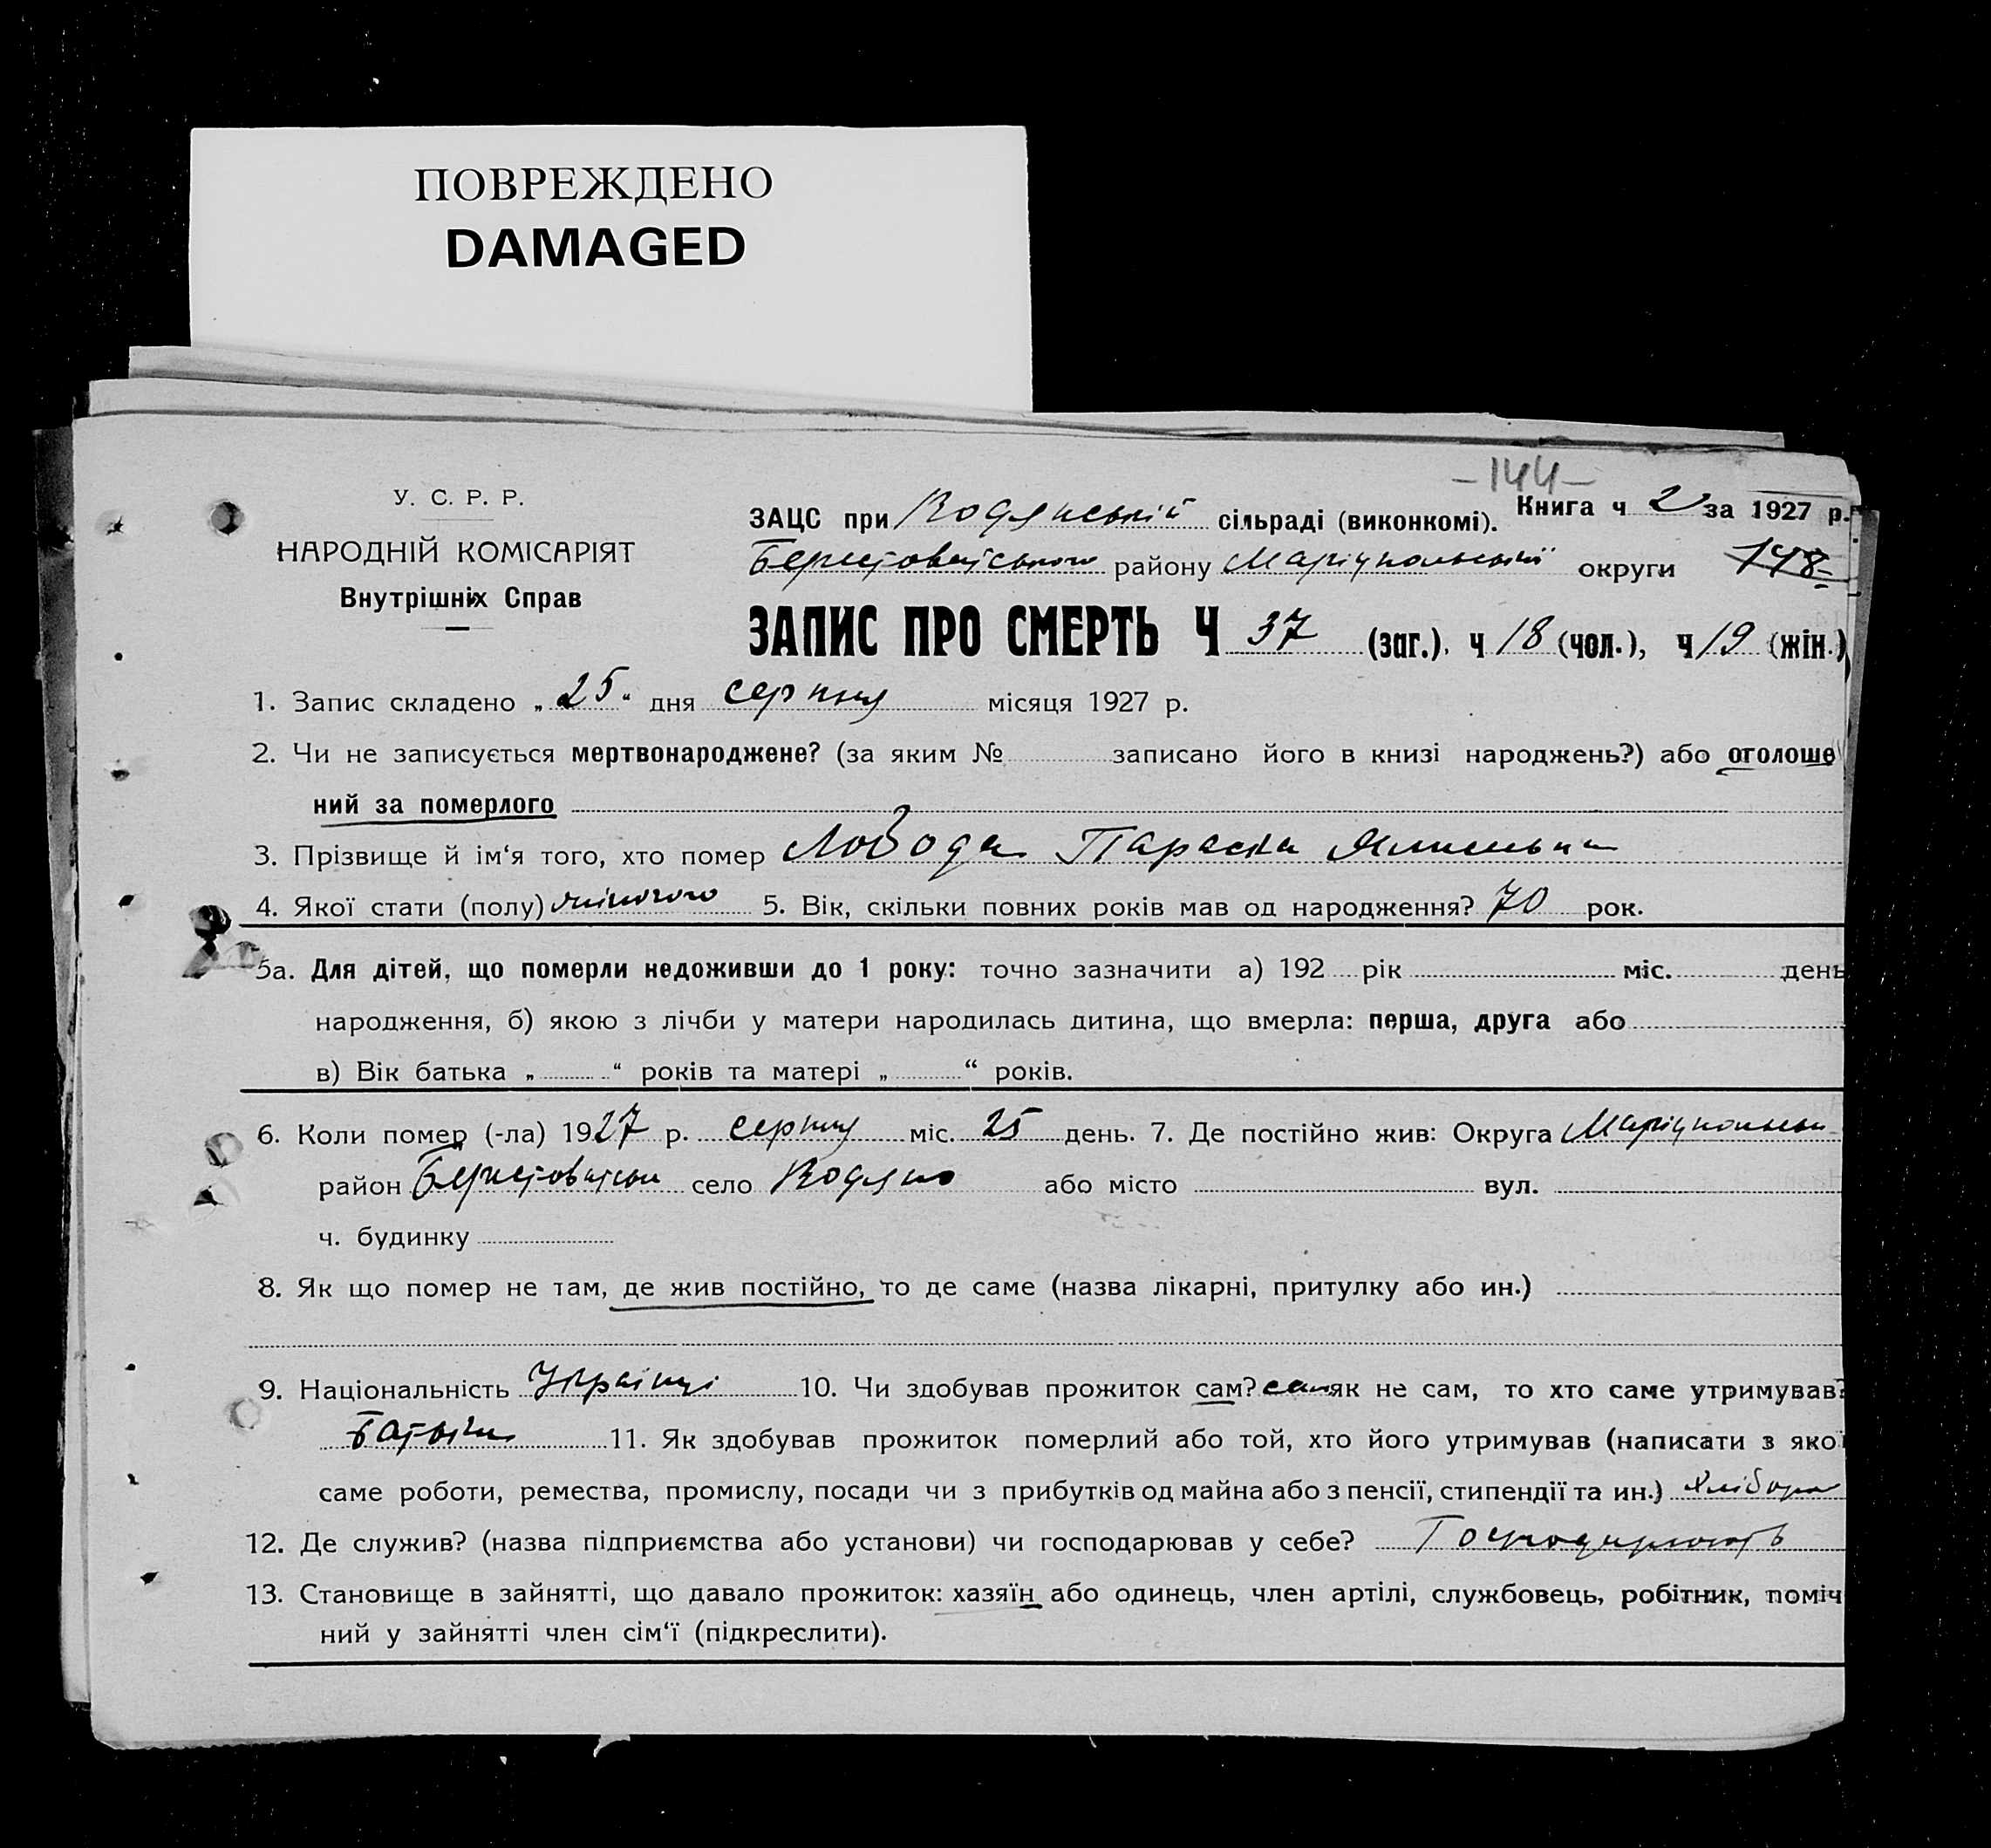 ПОВРЕЖДЕНО
DAMAGED
-144-
У. С. Р. Р.
НАРОДНІЙ КОМІСАРІЯТ
Внутрішніх Справ
ЗАЦС при Водянській сільраді (виконкомі). Книга ч 2 за 1927 р.
району Маріупольської округи 148-
ЗАПИС ПРО СМЕРТЬ Ч 37 (заг.). ч 18 (чол.), ч 19 (жін.)
1. Запис складено „25“ дня серпня місяця 1927 р.
2. Чи не записується мертвонароджене? (за яким № записано його в книзі народжень?) або оголоше
ний за померлого
3. Прізвище й ім‘я того, хто помер Лобода Параска
4. Якої стати (полу) жіночого 5. Вік, скільки повних років мав од народження? 70 рок.
5а. Для дітей, що померли недоживши до 1 року: точно зазначити а) 192 рік міс. день
народження, б) якою з лічби у матери народилась дитина, що вмерла: перша, друга або
в) Вік батька „ “ років та матері „ “ років.
6. Коли помер (-ла) 1927 р. серпня міс. 25 день. 7. Де постійно жив: Округа
район село Водяно або місто вул.
ч. будинку
8. Як що помер не там, де жив постійно, то де саме (назва лікарні, притулку або ин.)
9. Національність 10. Чи здобував прожиток сам? сам як не сам, то хто саме утримував?
11. Як здобував прожиток померлий або той, хто його утримував (написати з якої
саме роботи, ремества, промислу, посади чи з прибутків од майна або з пенсії, стипендії та ин.)
12. Де служив? (назва підприємства або установи) чи господарював у себе?
13. Становище в зайнятті, що давало прожиток: хазяїн або одинець, член артілі, службовець, робітник, поміч
ний у зайнятті член сім‘ї (підкреслити).